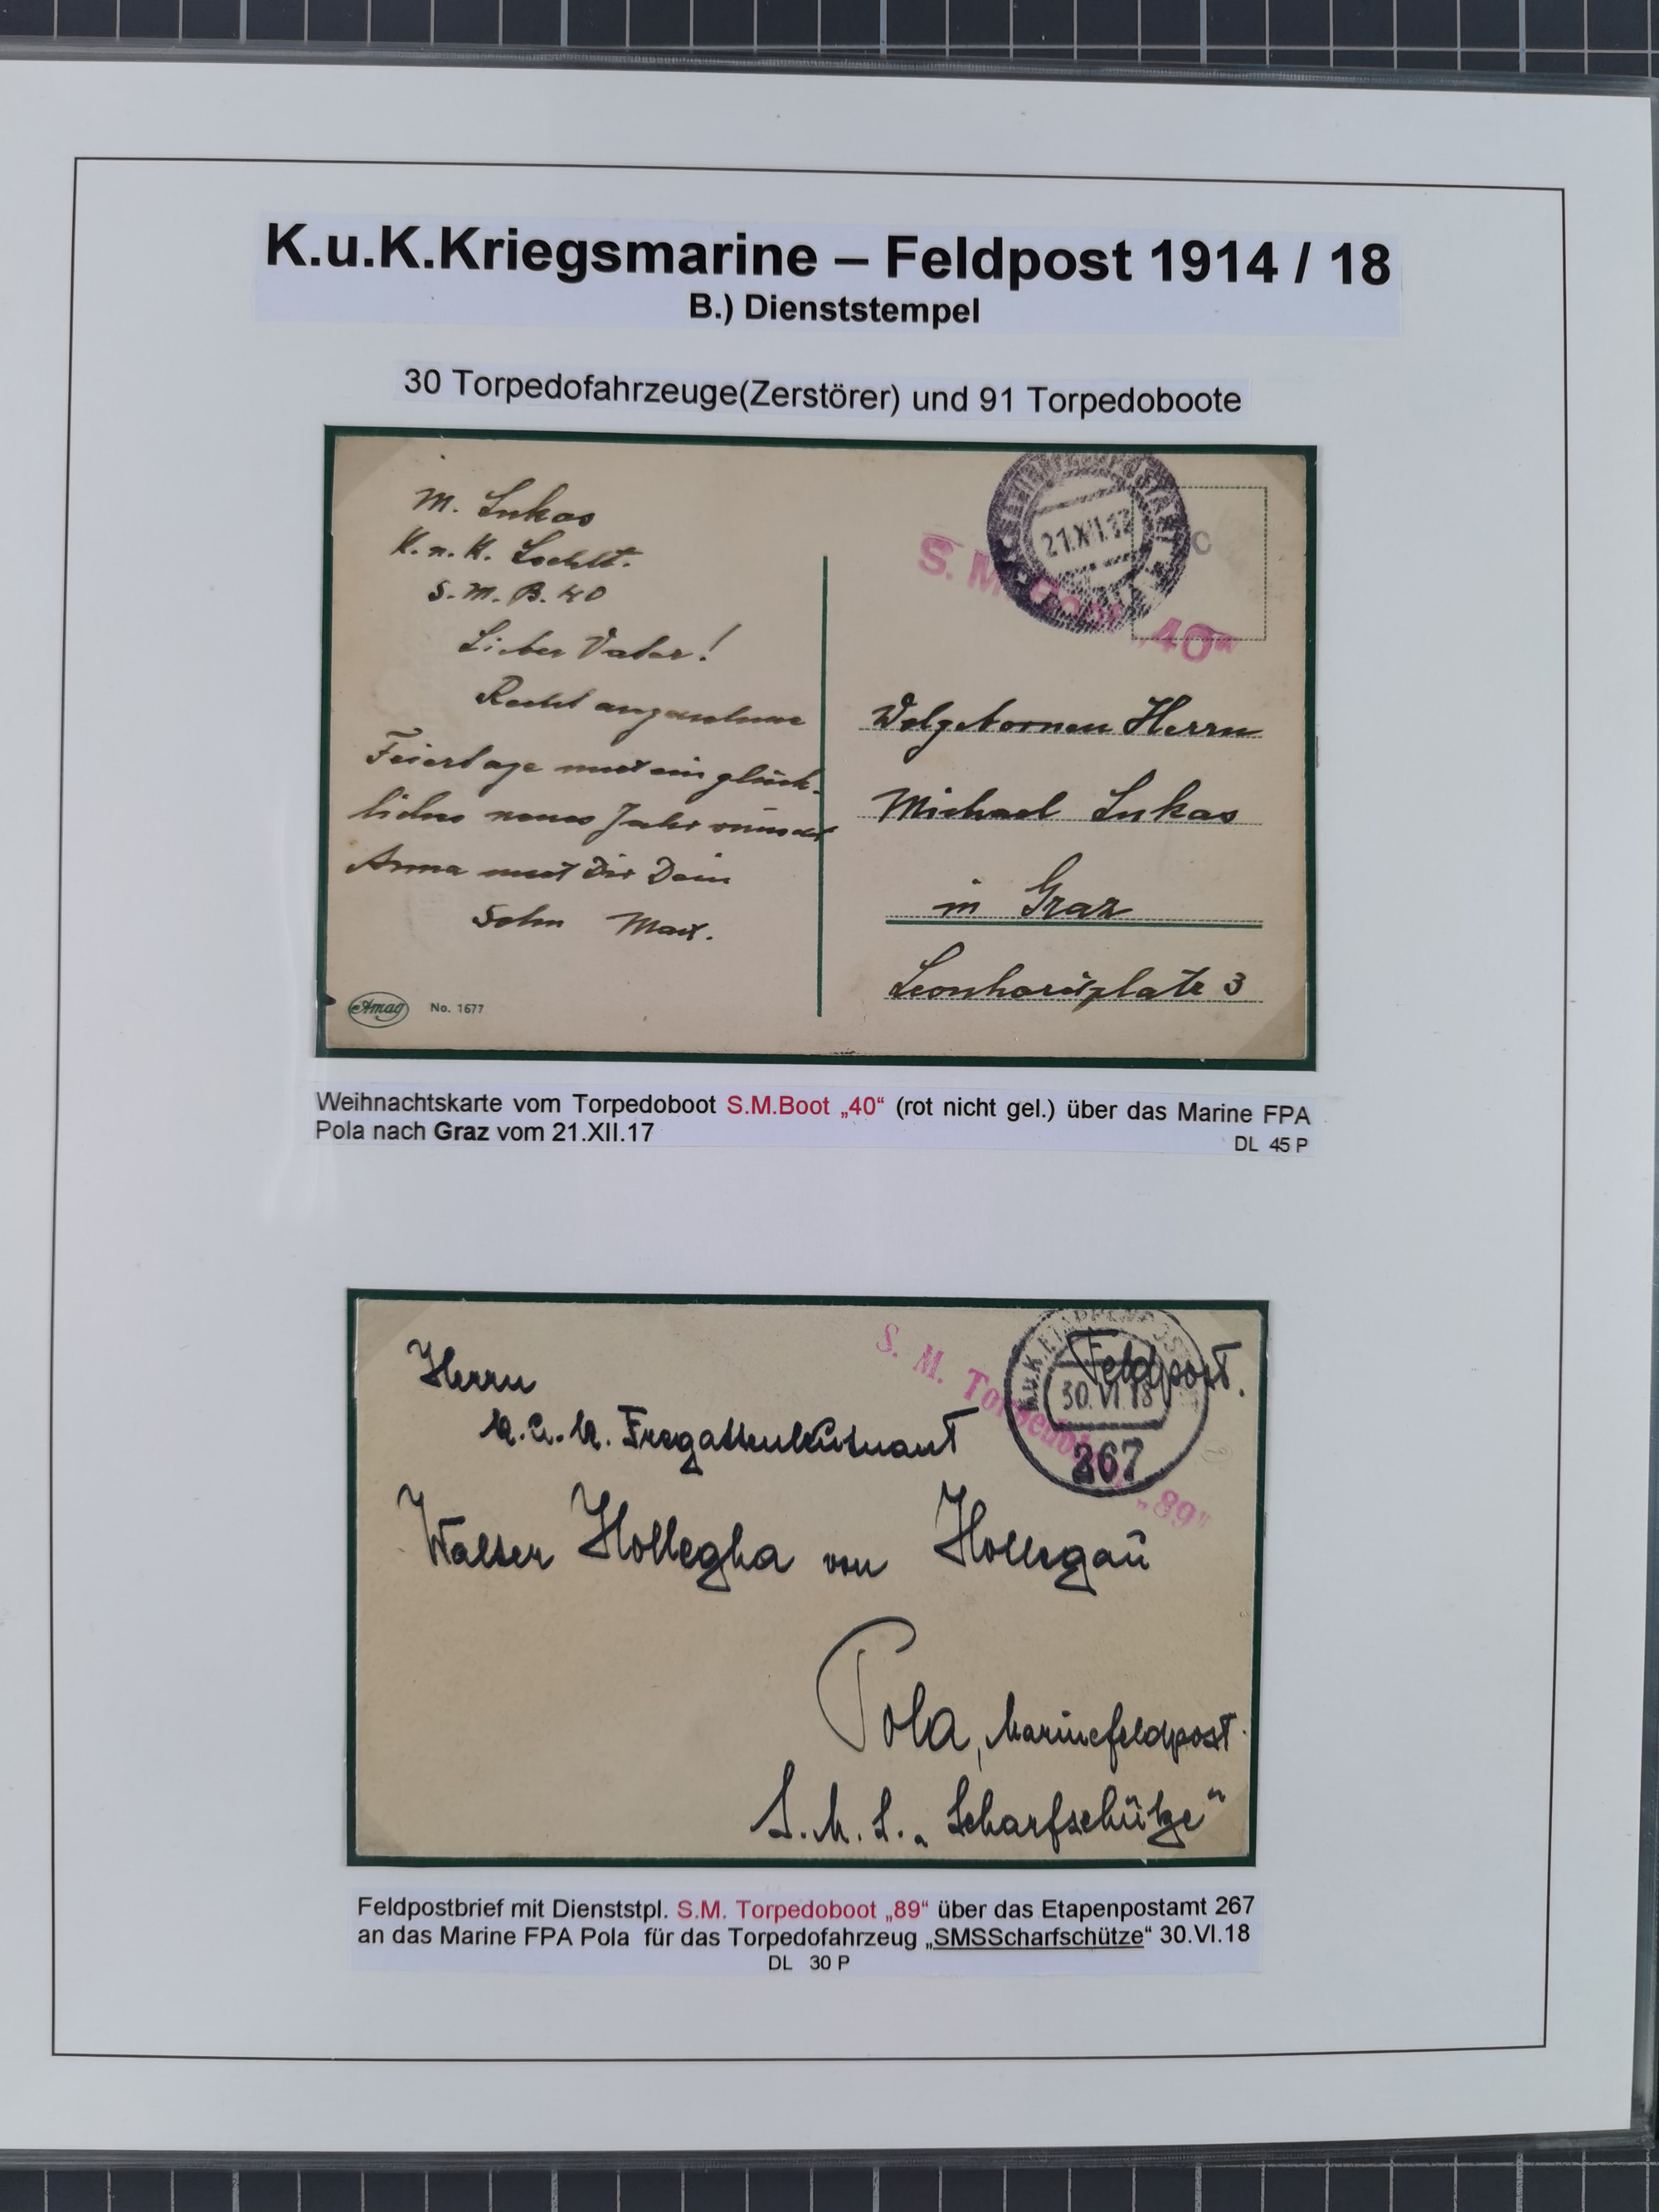 K.u.K.Kriegsmarine – Feldpost 1914 / 18
B.) Dienststempel
30 Torpedofahrzeuge(Zerstörer) und 91 Torpedoboote
M. Lukas
K. u. K.
S. M. B. 40
Lieber Vater!
Recht angenehme
Feiertage und ein glück-
liches neues Jahr wünscht
Anna und Dir Dein
Sohn Max.
Amag No. 1677
21.XII.17
S. M. Boot „40“
Wolgebornen Herrn
Michael Lukas
in Graz
Leonhardplatz 3
Weihnachtskarte vom Torpedoboot S.M.Boot „40“ (rot nicht gel.) über das Marine FPA
Pola nach Graz vom 21.XII.17
DL 45 P
S. M. Torpedoboot „89“
K.u.K. ETAPPENPOST
30.VI.18
267
Feldpost.
Herrn
K. u. K. Fregattenleutnant
Walter Hollegha von Hollegau
Pola, Marinefeldpost
S. M. S. „Scharfschütze“
Feldpostbrief mit Dienststpl. S.M. Torpedoboot „89“ über das Etapenpostamt 267
an das Marine FPA Pola für das Torpedofahrzeug „SMSScharfschütze“ 30.VI.18
DL 30 P